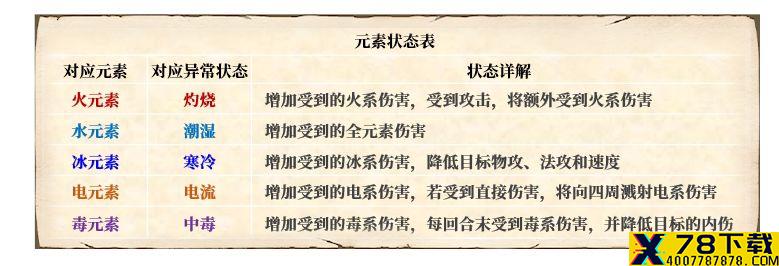 元素状态表
对应元素 对应异常状态 状态详解
火元素 灼烧 增加受到的火系伤害，受到攻击，将额外受到火系伤害
水元素 潮湿 增加受到的全元素伤害
冰元素 寒冷 增加受到的冰系伤害，降低目标物攻、法攻和速度
电元素 电流 增加受到的电系伤害，若受到直接伤害，将向四周溅射电系伤害
毒元素 中毒 增加受到的毒系伤害，每回合末受到毒系伤害，并降低目标的内伤
78下载
4007787878.COM